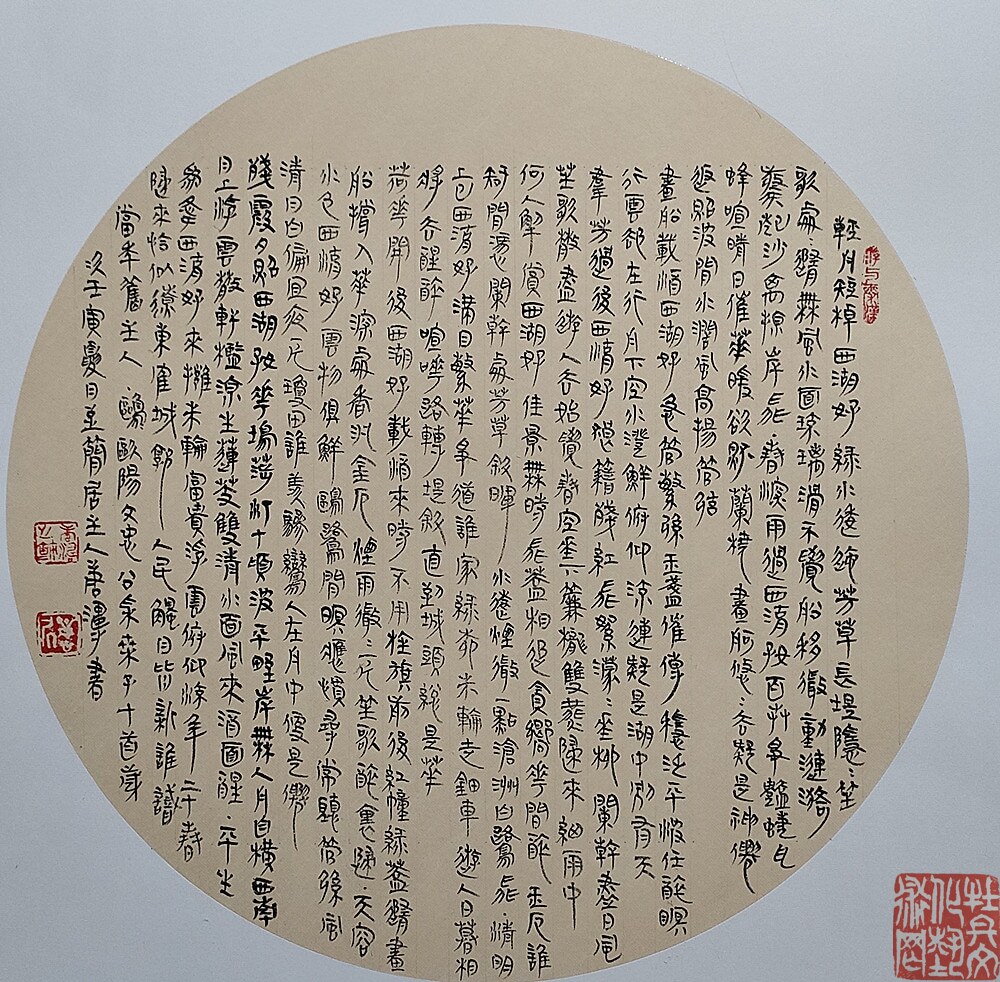 輕舟短棹西湖好綠水逶迤芳草長堤隱隱笙
歌處處隨無風水面琉璃滑不覺船移微動漣漪
驚起沙禽掠岸飛春深雨過西湖好百卉爭豔蝶亂
蜂喧晴日催花暖欲然蘭橈畫舸悠悠去疑是神仙
返照波間水闊風高揚管絃
畫船載酒西湖好急管繁絃玉盞催傳穩泛平波任醉眠
行雲卻在行舟下空水澄鮮俯仰流連疑是湖中別有天
群芳過後西湖好狼籍殘紅飛絮濛濛垂柳闌幹盡日風
笙歌散盡遊人去始覺春空垂下簾櫳雙燕歸來細雨中
何人解賞西湖好佳景無時飛蓋相追貪嚮花間醉玉卮誰
知閒憑闌幹處芳草斜暉水遠煙微一點滄洲白鷺飛清明
上巳西湖好滿目繁華爭道誰家綠柳朱輪走鈿車遊人日暮相
將去醒醉喧嘩路轉堤斜直到城頭總是花
荷花開後西湖好載酒來時不用旌旗前後紅幢綠蓋隨畫
船撐入花深處香泛金卮煙雨微微一片笙歌醉裏歸天容
水色西湖好雲物俱鮮鷗鷺閒眠應慣尋常聽管絃風
清月白偏宜夜一片瓊田誰羨驂鸞人在舟中便是仙
殘霞夕照西湖好花塢蘋汀十頃波平野岸無人舟自橫西南
月上浮雲散軒檻涼生蓮芰雙清水面風來酒面醒平生
為愛西湖好來擁朱輪富貴浮雲俯仰流年二十春
歸來恰似遼東鶴城郭人民觸目皆新誰識
當年舊主人歐陽文忠公采桑子十首歲
次壬寅夏日並簡居主人唐潭書